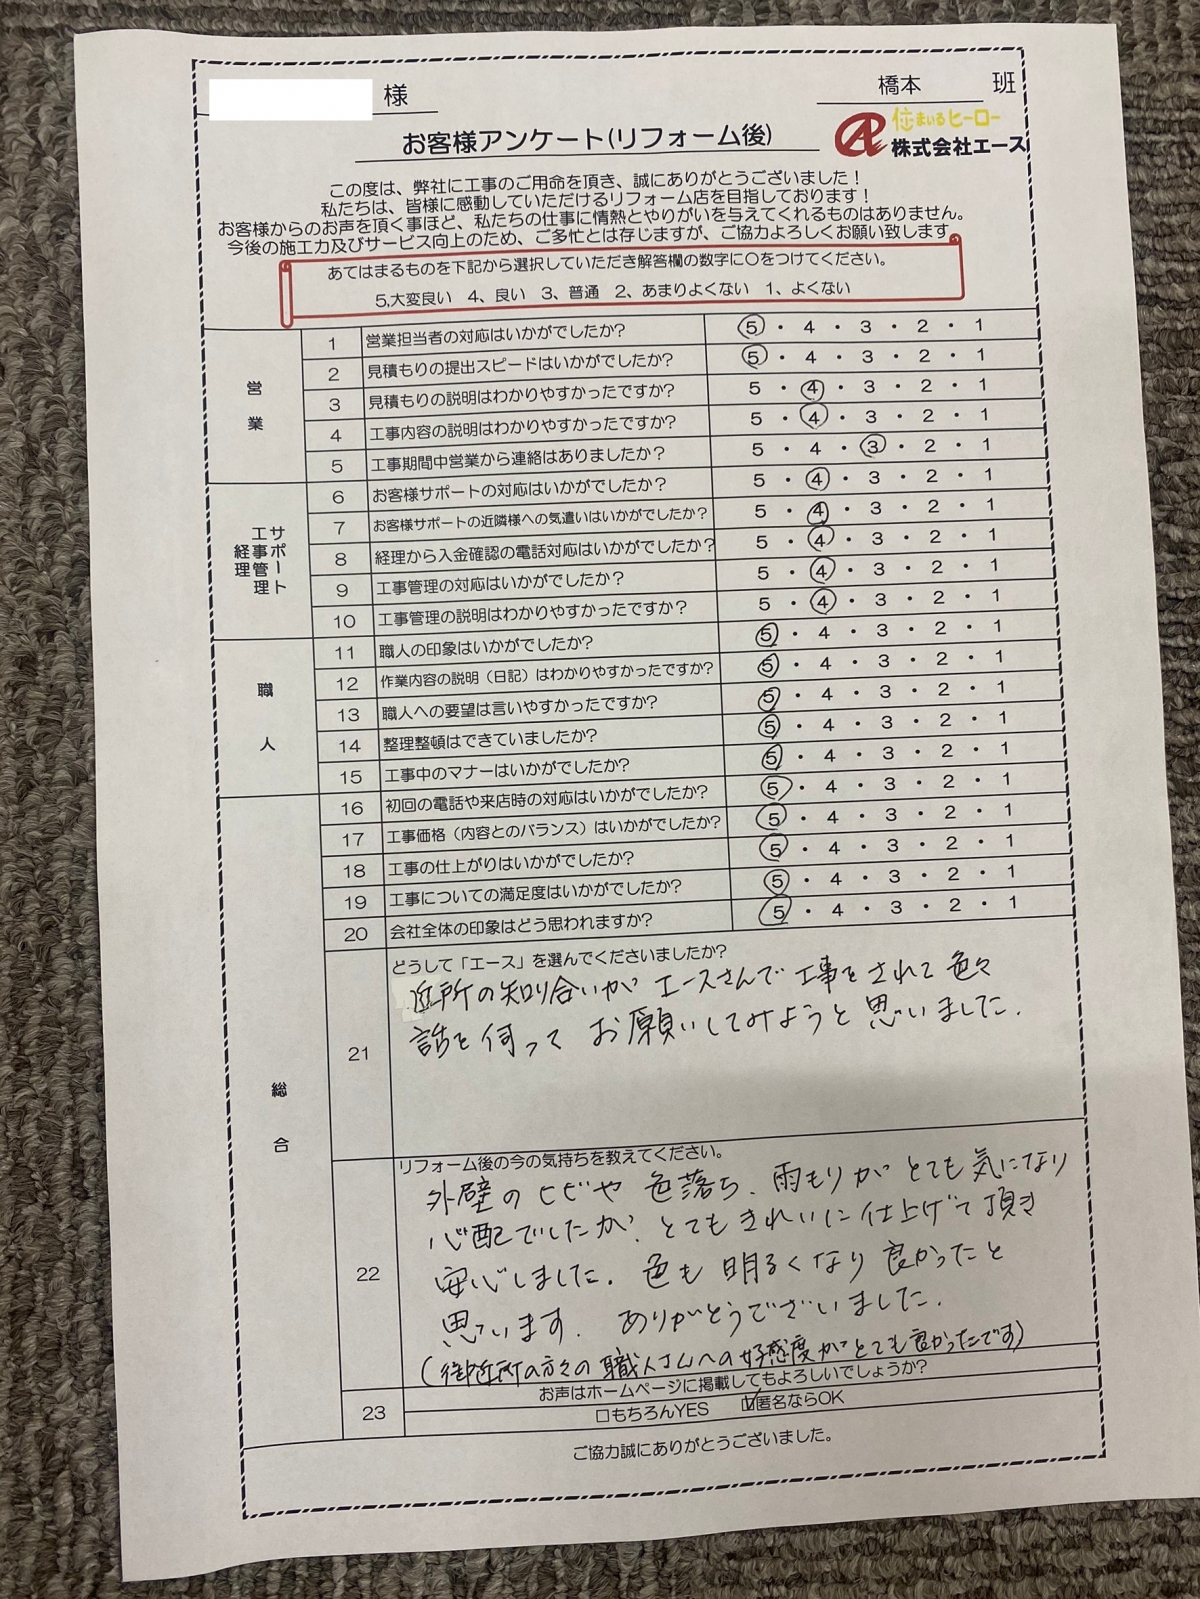 様
橋本 班
お客様アンケート(リフォーム後)
住まいるヒーロー
株式会社エース
この度は、弊社に工事のご用命を頂き、誠にありがとうございました!
私たちは、皆様に感動していただけるリフォーム店を目指しております!
お客様からのお声を頂く事ほど、私たちの仕事に情熱とやりがいを与えてくれるものはありません。
今後の施工力及びサービス向上のため、ご多忙とは存じますが、ご協力よろしくお願い致します
あてはまるものを下記から選択していただき解答欄の数字に○をつけてください。
5,大変良い 4、良い 3、普通 2、あまりよくない 1、よくない
営業
1 営業担当者の対応はいかがでしたか? 5・4・3・2・1
2 見積もりの提出スピードはいかがでしたか? 5・4・3・2・1
3 見積もりの説明はわかりやすかったですか? 5・4・3・2・1
4 工事内容の説明はわかりやすかったですか? 5・4・3・2・1
5 工事期間中営業から連絡はありましたか? 5・4・3・2・1
サポート
工事管理
経理
6 お客様サポートの対応はいかがでしたか? 5・4・3・2・1
7 お客様サポートの近隣様への気遣いはいかがでしたか? 5・4・3・2・1
8 経理から入金確認の電話対応はいかがでしたか? 5・4・3・2・1
9 工事管理の対応はいかがでしたか? 5・4・3・2・1
10 工事管理の説明はわかりやすかったですか? 5・4・3・2・1
職人
11 職人の印象はいかがでしたか? 5・4・3・2・1
12 作業内容の説明(日記)はわかりやすかったですか? 5・4・3・2・1
13 職人への要望は言いやすかったですか? 5・4・3・2・1
14 整理整頓はできていましたか? 5・4・3・2・1
15 工事中のマナーはいかがでしたか? 5・4・3・2・1
総合
16 初回の電話や来店時の対応はいかがでしたか? 5・4・3・2・1
17 工事価格(内容とのバランス)はいかがでしたか? 5・4・3・2・1
18 工事の仕上がりはいかがでしたか? 5・4・3・2・1
19 工事についての満足度はいかがでしたか? 5・4・3・2・1
20 会社全体の印象はどう思われますか? 5・4・3・2・1
21 どうして「エース」を選んでくださいましたか?
近所の知り合いが エースさんで 工事をされて 色々
話を伺って お願いしてみようと思いました.
22 リフォーム後の今の気持ちを教えてください。
外壁のヒビや 色落ち、雨もりが とても気になり
心配でしたが、とてもきれいに仕上げて頂き
安心しました. 色も 明るくなり 良かったと
思います. ありがとうございました.
(御近所の方々の職人さんへの好感度がとても良かったです)
23 お声はホームページに掲載してもよろしいでしょうか?
□もちろんYES ☑匿名ならOK
ご協力誠にありがとうございました。